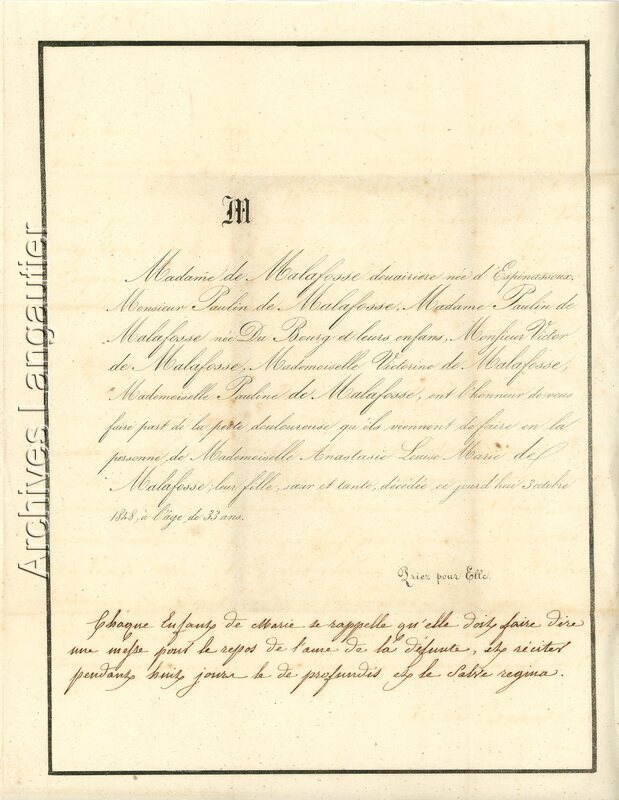 M
Madame de Malafosse douairiere née d'Espinassoux,
Monsieur Paulin de Malafosse, Madame Paulin de
Malafosse née Du Bourg et leurs enfans, Monsieur Victor
de Malafosse, Mademoiselle Victorine de Malafosse,
Mademoiselle Pauline de Malafosse, ont l'honneur de vous
faire part de la perte douloureuse qu'ils viennent de faire en la
personne de Mademoiselle Anastasie Louise Marie de
Malafosse, leur fille, sœur et tante, décédée, ce jourd'hui 3 octobre
1848, à l'âge de 33 ans.
Priez pour Elle.
Chaque Enfant de Marie se rappelle qu'elle doit faire dire
une messe pour le repos de l'ame de la défunte, et réciter
pendant huit jours le de profundis et le Salve regina.
Archives Langautier